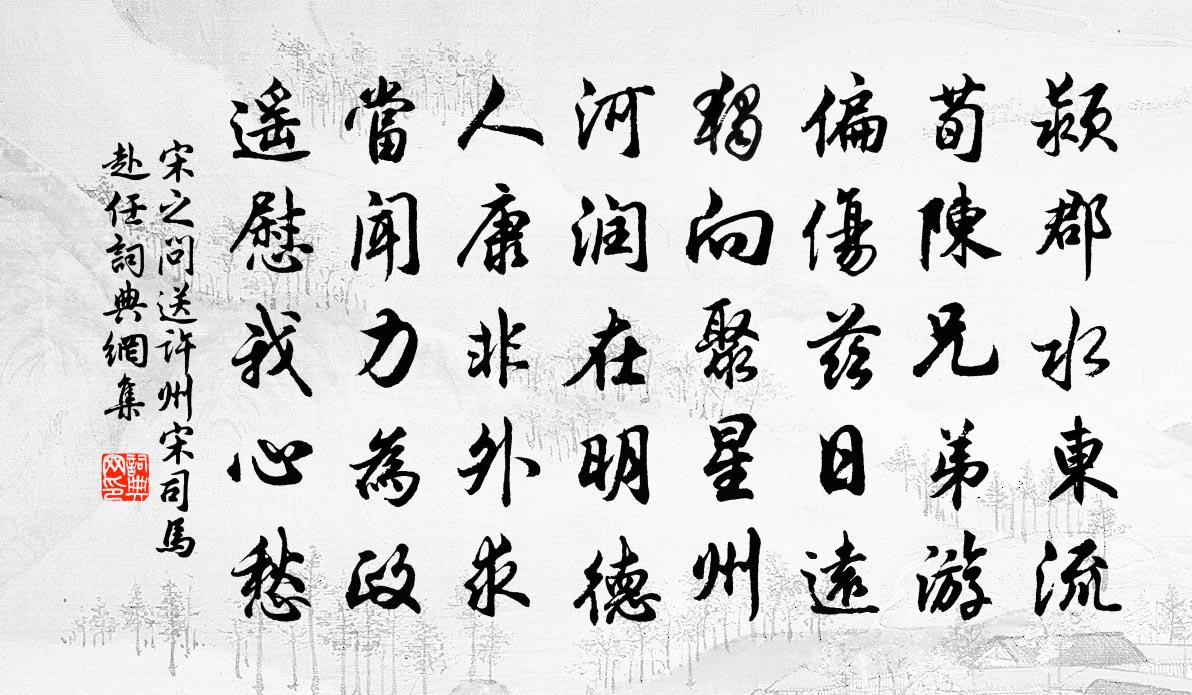 潁郡水東流
荀陳兄弟游
偏傷茲日遠
獨向聚星州
河润在明德
人康非外求
當聞力為政
遥慰我心愁
宋之问送许州宋司馬
赴任詞典網集
詞典网印